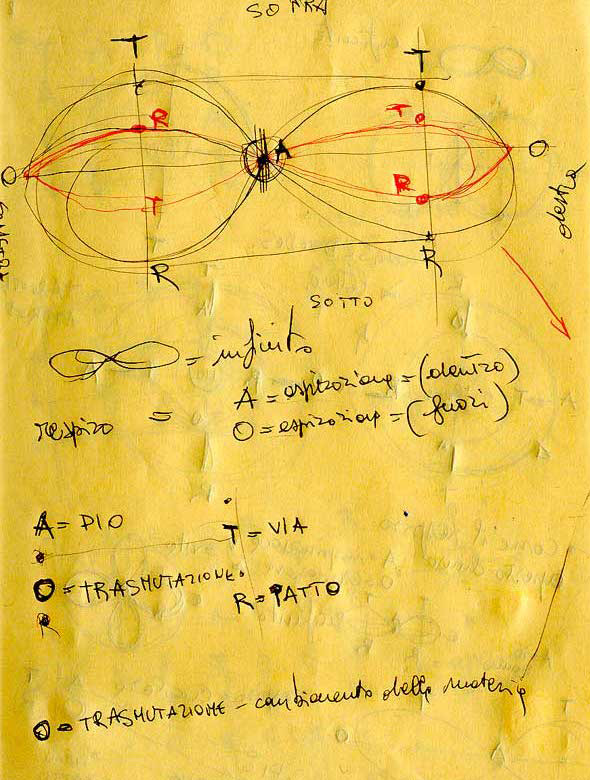 SOPRA
T T
R T
A
O O
T R
R R
destra
SOTTO
= infinito
A = aspirazione = (dentro)
respiro =
O = espirazione = (fuori)
A = DIO
T = VIA
O = TRASMUTAZIONE.
R = PATTO
R
O = TRASMUTAZIONE - cambiamento della materia